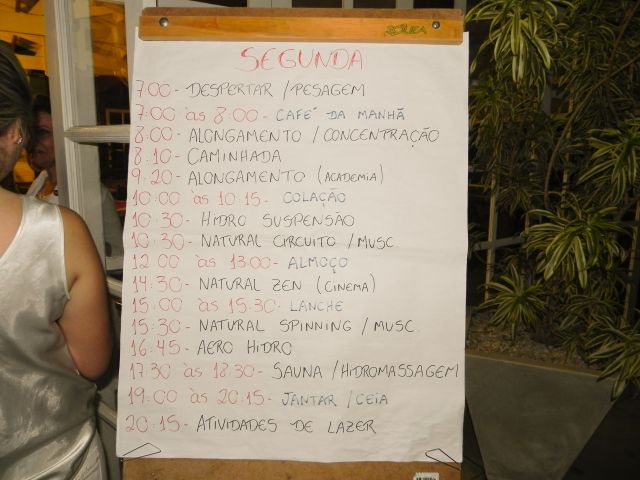 SOUZA
SEGUNDA
7:00 - DESPERTAR / PESAGEM
7:00 às 8:00 - CAFÉ DA MANHÃ
8:00 - ALONGAMENTO / CONCENTRAÇÃO
8:10 - CAMINHADA
9:20 - ALONGAMENTO (ACADEMIA)
10:00 às 10:15 - COLAÇÃO
10:30 - HIDRO SUSPENSÃO
10:30 - NATURAL CIRCUITO / MUSC.
12:00 às 13:00 - ALMOÇO
14:30 - NATURAL ZEN (CINEMA)
15:00 às 15:30 - LANCHE
15:30 - NATURAL SPINNING / MUSC.
16:45 - AERO HIDRO
17:30 às 18:30 - SAUNA / HIDROMASSAGEM
19:00 às 20:15 - JANTAR / CEIA
20:15 - ATIVIDADES DE LAZER